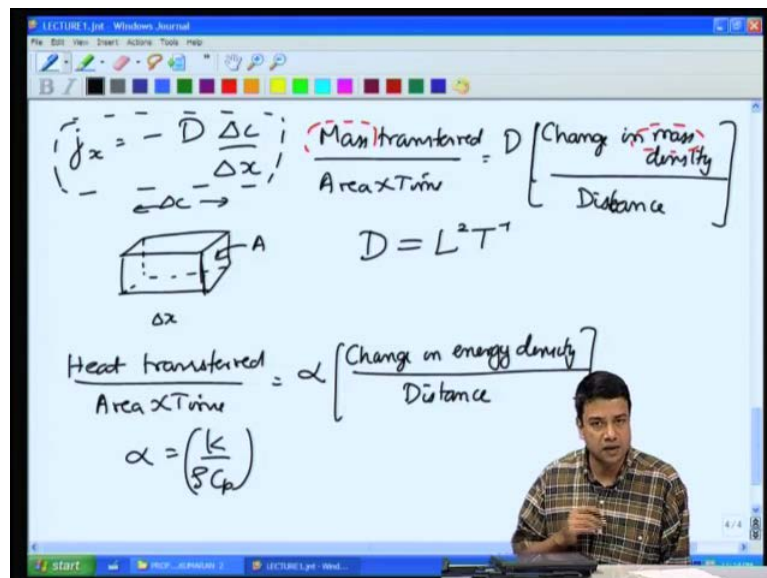 LECTURE1.jnt - Windows Journal
File Edit View Insert Actions Tools Help
B I
j_x = - D Δc / Δx
Mass transferred / Area x Time = D [ Change in mass density / Distance ]
Δc
A
Δx
D = L² T⁻¹
Heat transferred / Area x Time = α [ Change in energy density / Distance ]
α = ( k / ρ Cp )
4/4
start
LECTURE1.jnt - Wind...